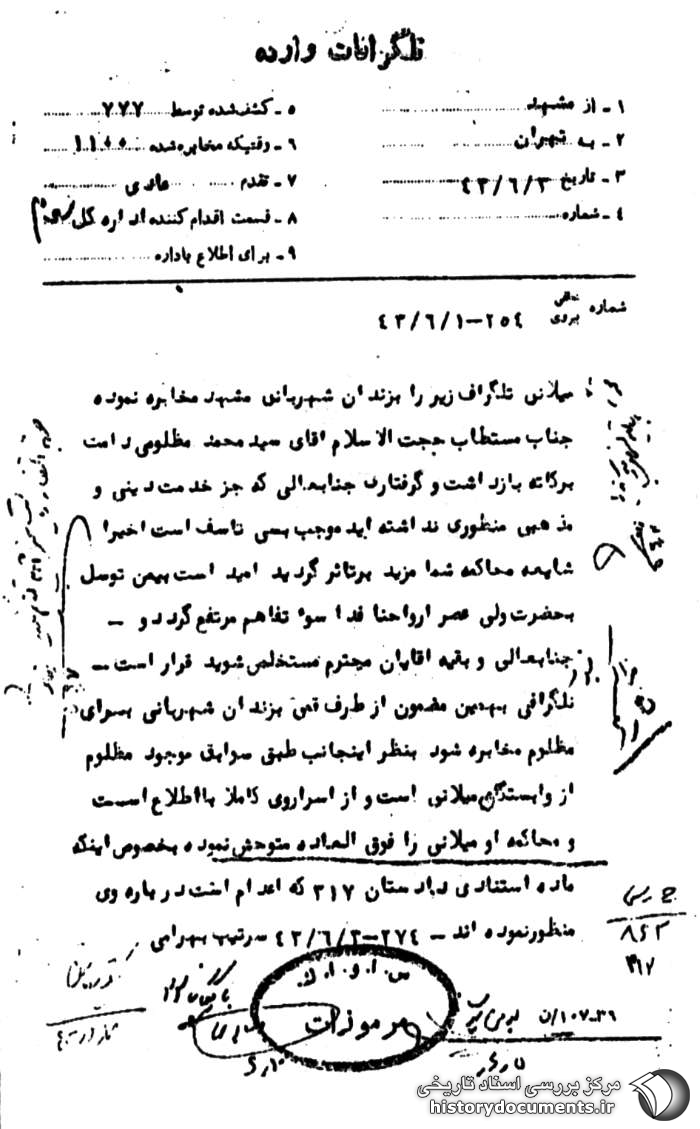 تلگرافات وارده
۱ـ از مشهد
۲ـ به تهران
۳ـ تاریخ ۴۳/۶/۳
۴ـ شماره
۵ـ کشف شده توسط ۷۷۷
۶ـ وقتیکه مخابره شده ۱۱۰۰
۷ـ تقدم عادی
۸ـ قسمت اقدام کننده اداره کل سوم
۹ـ برای اطلاع باداره
شماره
بروی ۲۵۴-۴۳/۶/۱
میلانی تلگراف زیر را بزندان شهربانی مشهد مخابره نموده
جناب مستطاب حجت الاسلام اقای سید محمد مظلومی دامت
برکاته بازداشت و گرفتاری جنابعالی که جز خدمت دینی و
مذهبی منظوری نداشته اید موجب بسی تاسف است اخیرا
شایعه محاکمه شما مزید برتاثر گردید امید است بیمن توسل
بحضرت ولی عصر ارواحنا فدا سوء تفاهم مرتفع گردد و ـ
جنابعالی و بقیه اقایان محترم مستخلص شوید قرار است ـ
تلگرافی بهمین مضمون از طرف قمی بزندان شهربانی بسرای
مظلوم مخابره شود بنظر اینجانب طبق سوابق موجود مظلوم
از وابستگان میلانی است و از اسراروی کاملا بااطلاع است
و محاکمه او میلانی را فوق العاده متوحش نموده بخصوص اینکه
ماده استنادی دادستان ۳۱۷ که اعدام است درباره وی
منظورنموده اند ـ ۲۷۴-۴۳/۶/۳ سرتیپ بهرامی
۸۴۲
۳۱۷
س.ا.و.ا.ک.
مرموزات
۳۶-۱۰۷/ن
مرکز بررسی اسناد تاریخی
historydocuments.ir